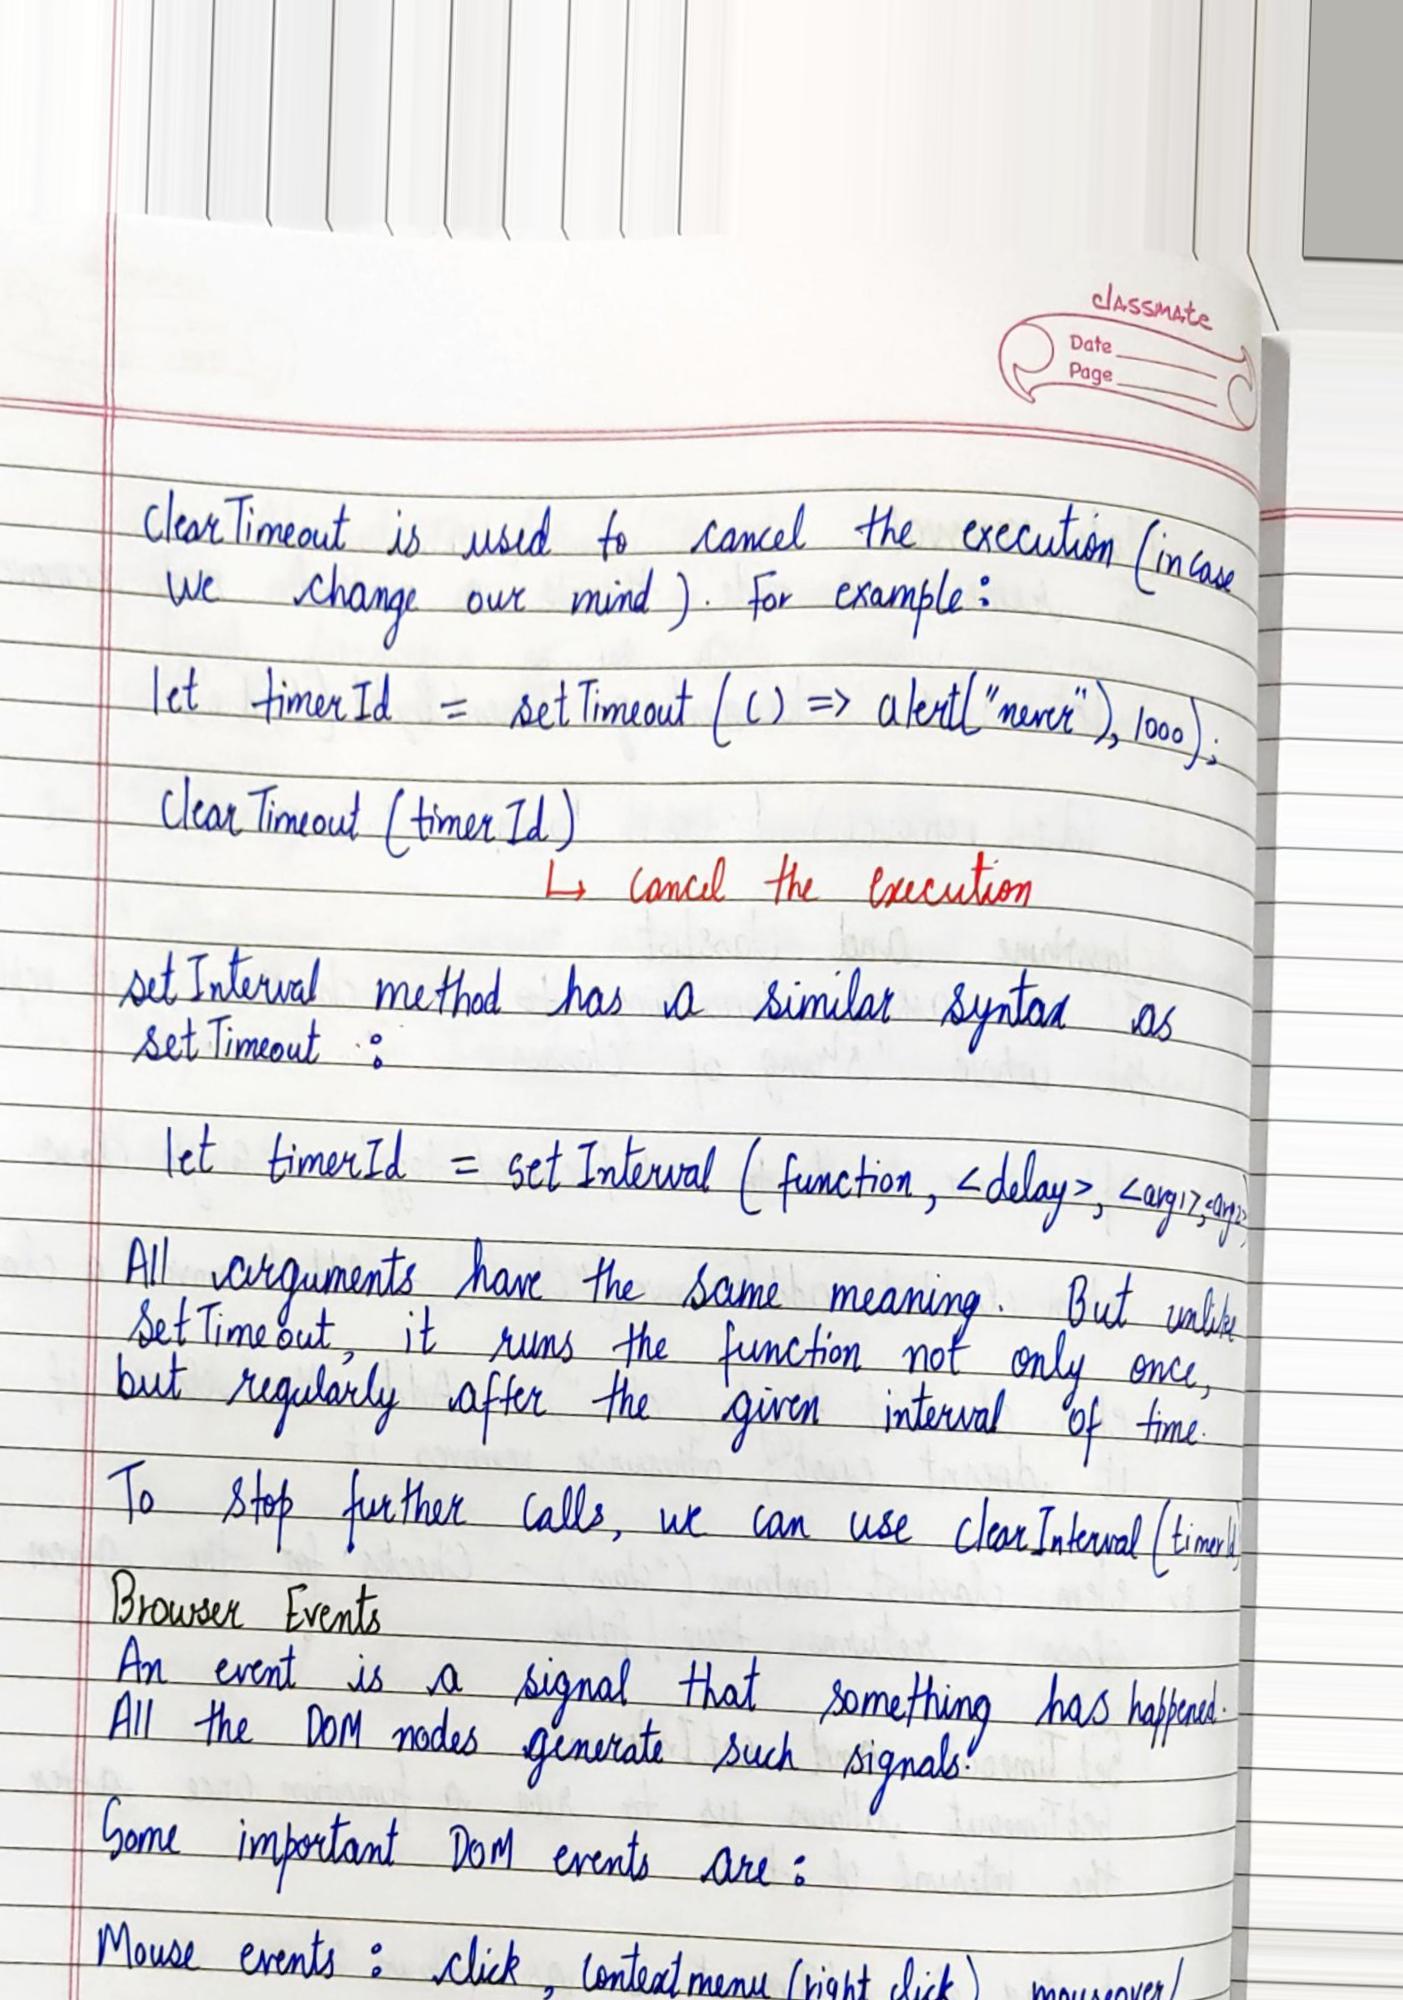 classmate
Date
Page
clearTimeout is used to cancel the execution (in case
we change our mind). For example:
let timerId = setTimeout (() => alert("never"), 1000);
clearTimeout (timerId)
↳ cancel the execution
setInterval method has a similar syntax as
setTimeout :
let timerId = setInterval (function, <delay>, <arg1>, <arg2>)
All arguments have the same meaning. But unlike
setTimeout, it runs the function not only once,
but regularly after the given interval of time.
To stop further calls, we can use clearInterval (timerId)
Browser Events
An event is a signal that something has happened.
All the DOM nodes generate such signals.
Some important DOM events are :
Mouse events : click, contextmenu (right click) mouseover/